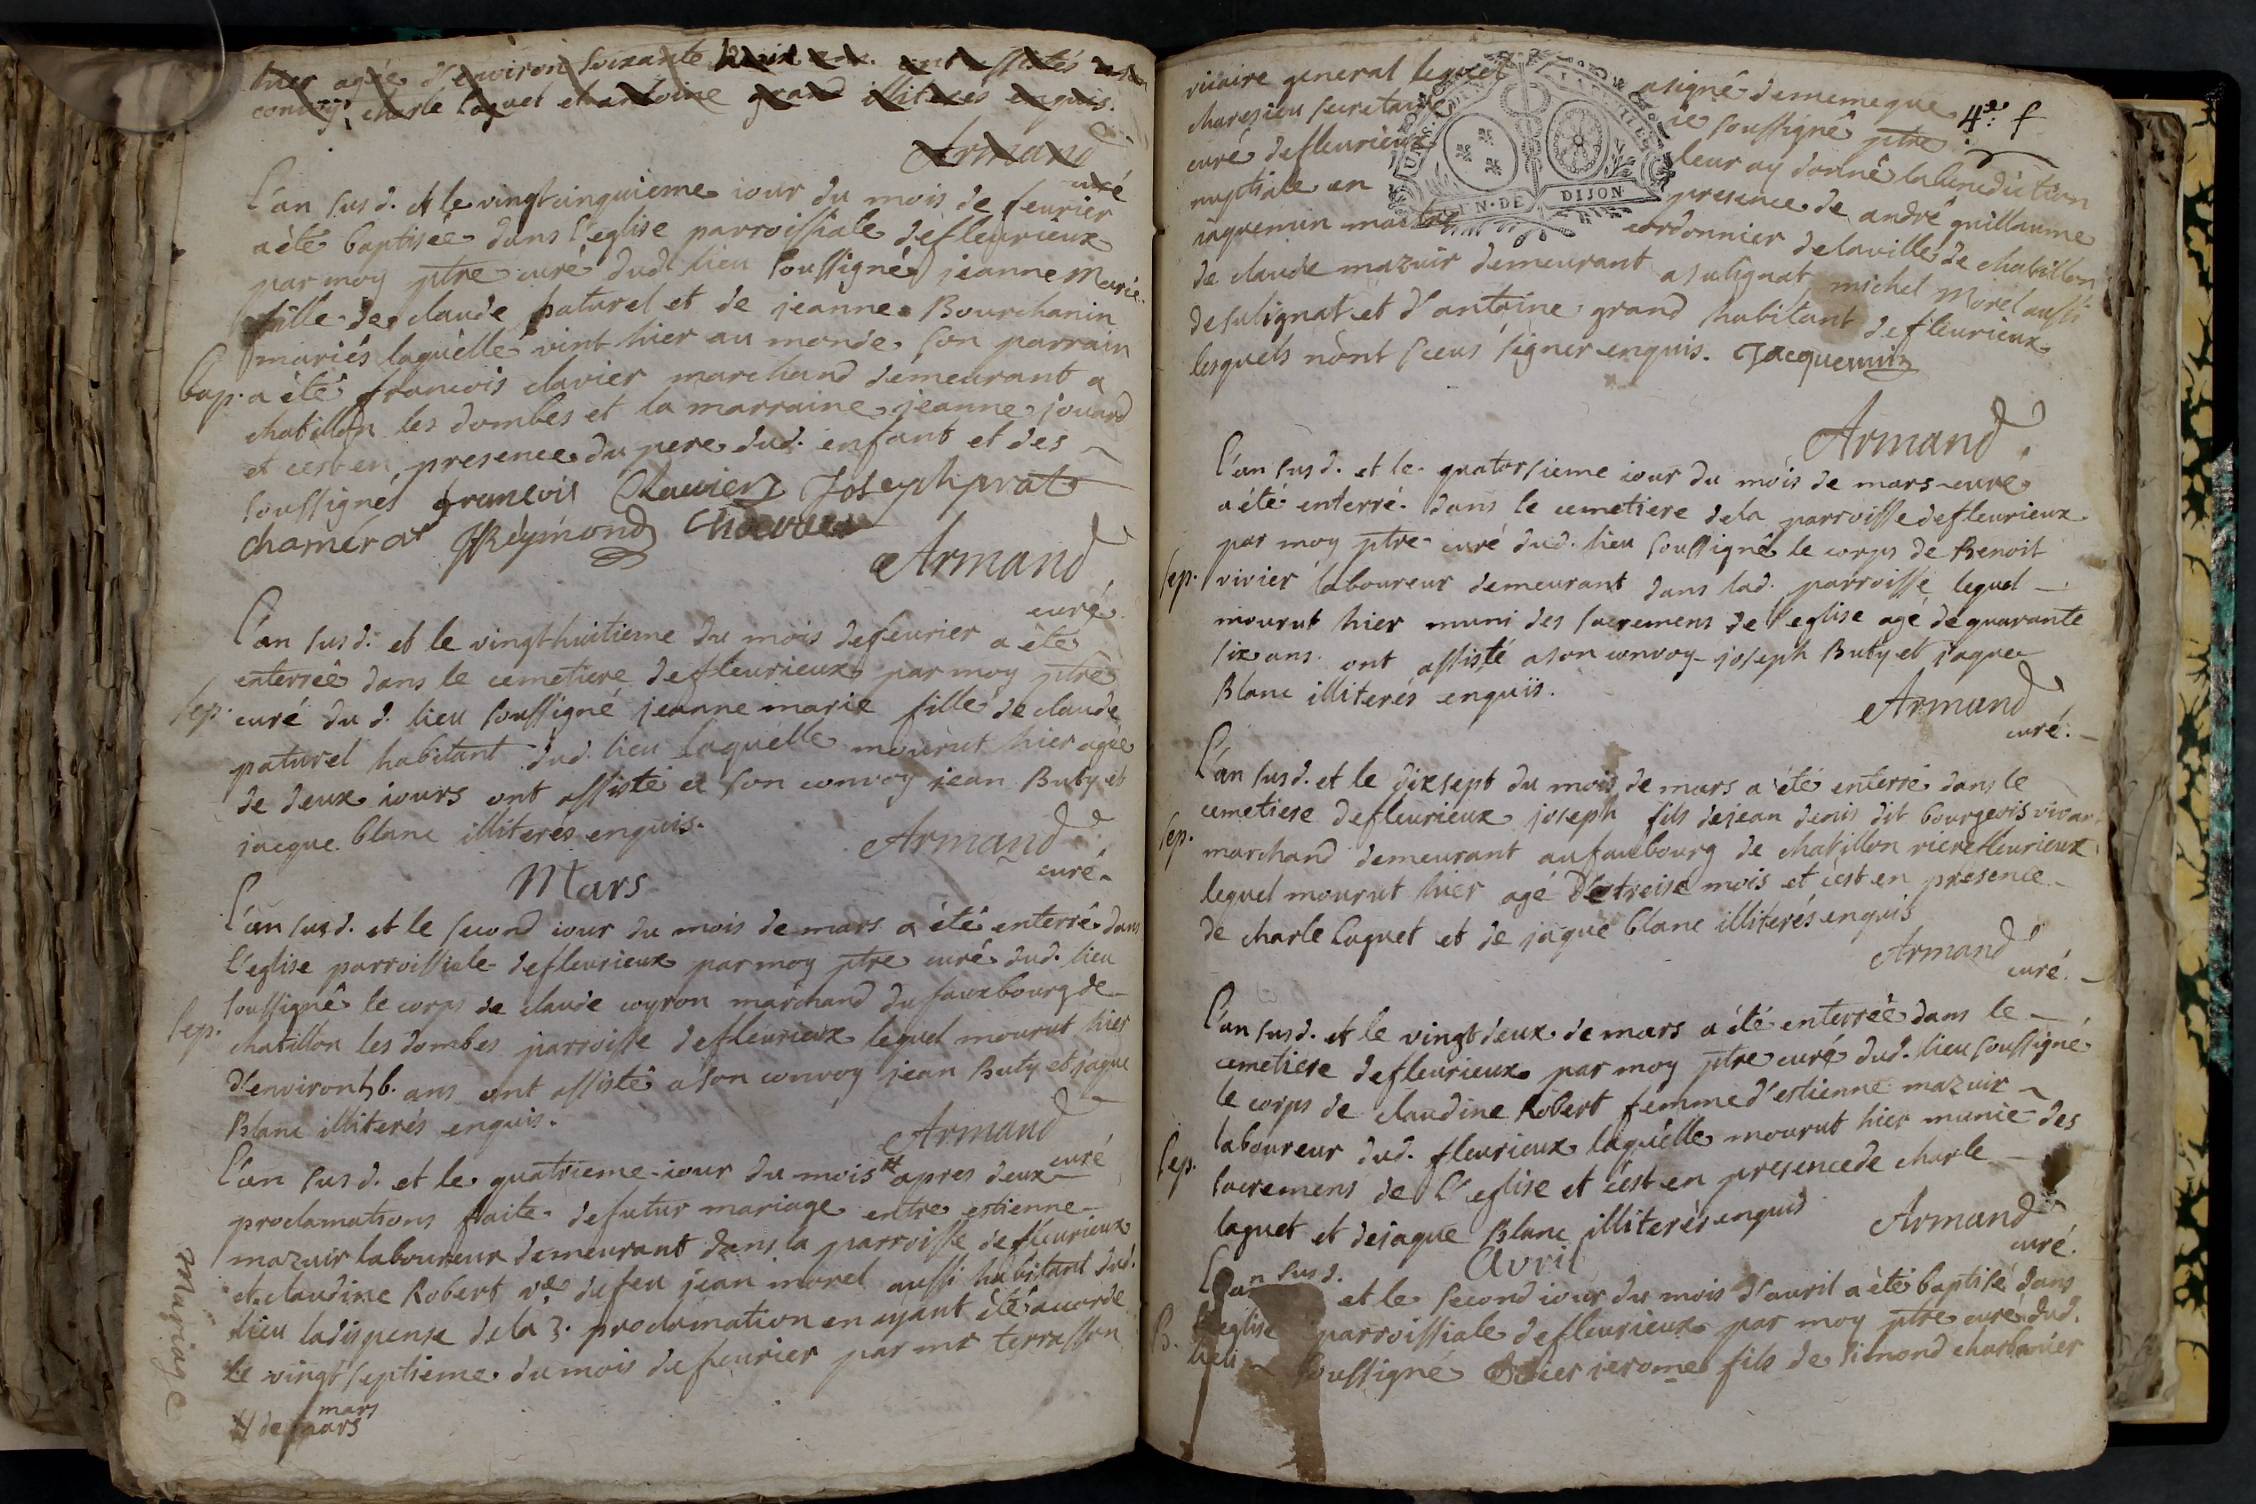 hier agée d'environ soixante huit ans. ont assistés a son
convoy charle laguet et antoine grand illiterés enquis.
Armand
curé
L'an susd. et le vingtcinquieme iour du mois de feurier
a été baptisée dans l'eglise parroissiale de fleurieux
par moy ptre curé dud. lieu soussigné jeanne Marie
fille de claude paturel et de jeanne Bourchanin
mariés laquelle vint hier au monde son parrain
bap. a été francois clavier marchand demeurant a
chatillon les dombes et la marraine jeanne jouard
et cest en presence du pere dud. enfant et des
soussignés francois Clavier Joseph prat
chamerat JReymond
Armand
curé.
L'an susd. et le vingthuitieme du mois de feurier a été
enterrée dans le cemetiere de fleurieux par moy ptre
sep. curé du d. lieu soussigné jeanne marie fille de claude
paturel habitant dud. lieu laquelle mourut hier agée
de deux iours ont assisté a son convoy jean Buty et
jacque blanc illiterés enquis.
Armand
curé
Mars
L'an susd. et le second iour du mois de mars a été enterré dans
l'eglise parroissiale de fleurieux par moy ptre curé dud. lieu
soussigné le corps de claude coyron marchand du fauxbourg de
sep. chatillon les dombes parroisse de fleurieux lequel mourut hier
d'environ ans ont assisté a son convoy jean Buty et jaque
Blanc illiterés enquis.
Armand
curé
L'an susd. et le quatrieme iour du mois # apres deux
proclamations faite de futur mariage entre estienne
mazuir laboureur demeurant dans la parroisse de fleurieux
et claudine Robert ve de feu jean morel aussi habitant dud.
lieu la dispense de la 3. proclamation en ayant été accordé
le vingt septieme du mois de feurier par mr terrasson
mariage
mars
# de mars
vicaire general lequel a signé de meme que
chares ieu secretaire ie soussigné ptre
4e. f
curé de fleurieux leur ay donné la benediction
nuptiale en presence de andré guillaume
GEN. DE DIJON
iaquemin maitre cordonnier de la ville de chatillon
de claude mazuir demeurant a sulignat michel Morel aussi
de sulignat et d'antoine grand habitant de fleurieux
lesquels n'ont sceus signer enquis. Jacquemin
Armand
L'an susd. et le quatorsieme iour du mois de mars
a été enterré dans le cemetiere de la parroisse de fleurieux
par moy ptre curé dud. lieu soussigné le corps de Benoit
sep. vivier laboureur demeurant dans lad. parroisse lequel
mourut hier muni des sacremens de l'eglise agé de quarante
six ans. ont assisté a son convoy joseph Buty et jaque
Blanc illiterés enquis.
Armand
curé.
L'an susd. et le dixsept du mois de mars a été enterré dans le
cemetiere de fleurieux joseph fils de jean denis dit bourgeois vivant
sep. marchand demeurant au fauxbourg de chatillon riere fleurieux
lequel mourut hier agé de treise mois et c'est en presence
de charle laguet et de jaque blanc illiterés enquis
Armand
curé.
L'an susd. et le vingtdeux de mars a été enterrée dans le
cemetiere de fleurieux par moy ptre curé dud. lieu soussigné
le corps de claudine Robert femme d'estienne mazuir
laboureur dud. fleurieux laquelle mourut hier munie des
sep. sacremens de l'eglise et c'est en presence de charle
laguet et de jaque Blanc illiterés enquis
Armand
curé.
Avril
L'an susd. et le second iour du mois d'avril a été baptisé dans
B. l'eglise parroissiale de fleurieux par moy ptre curé dud.
lieu soussigné ierome fils de simond charbonier